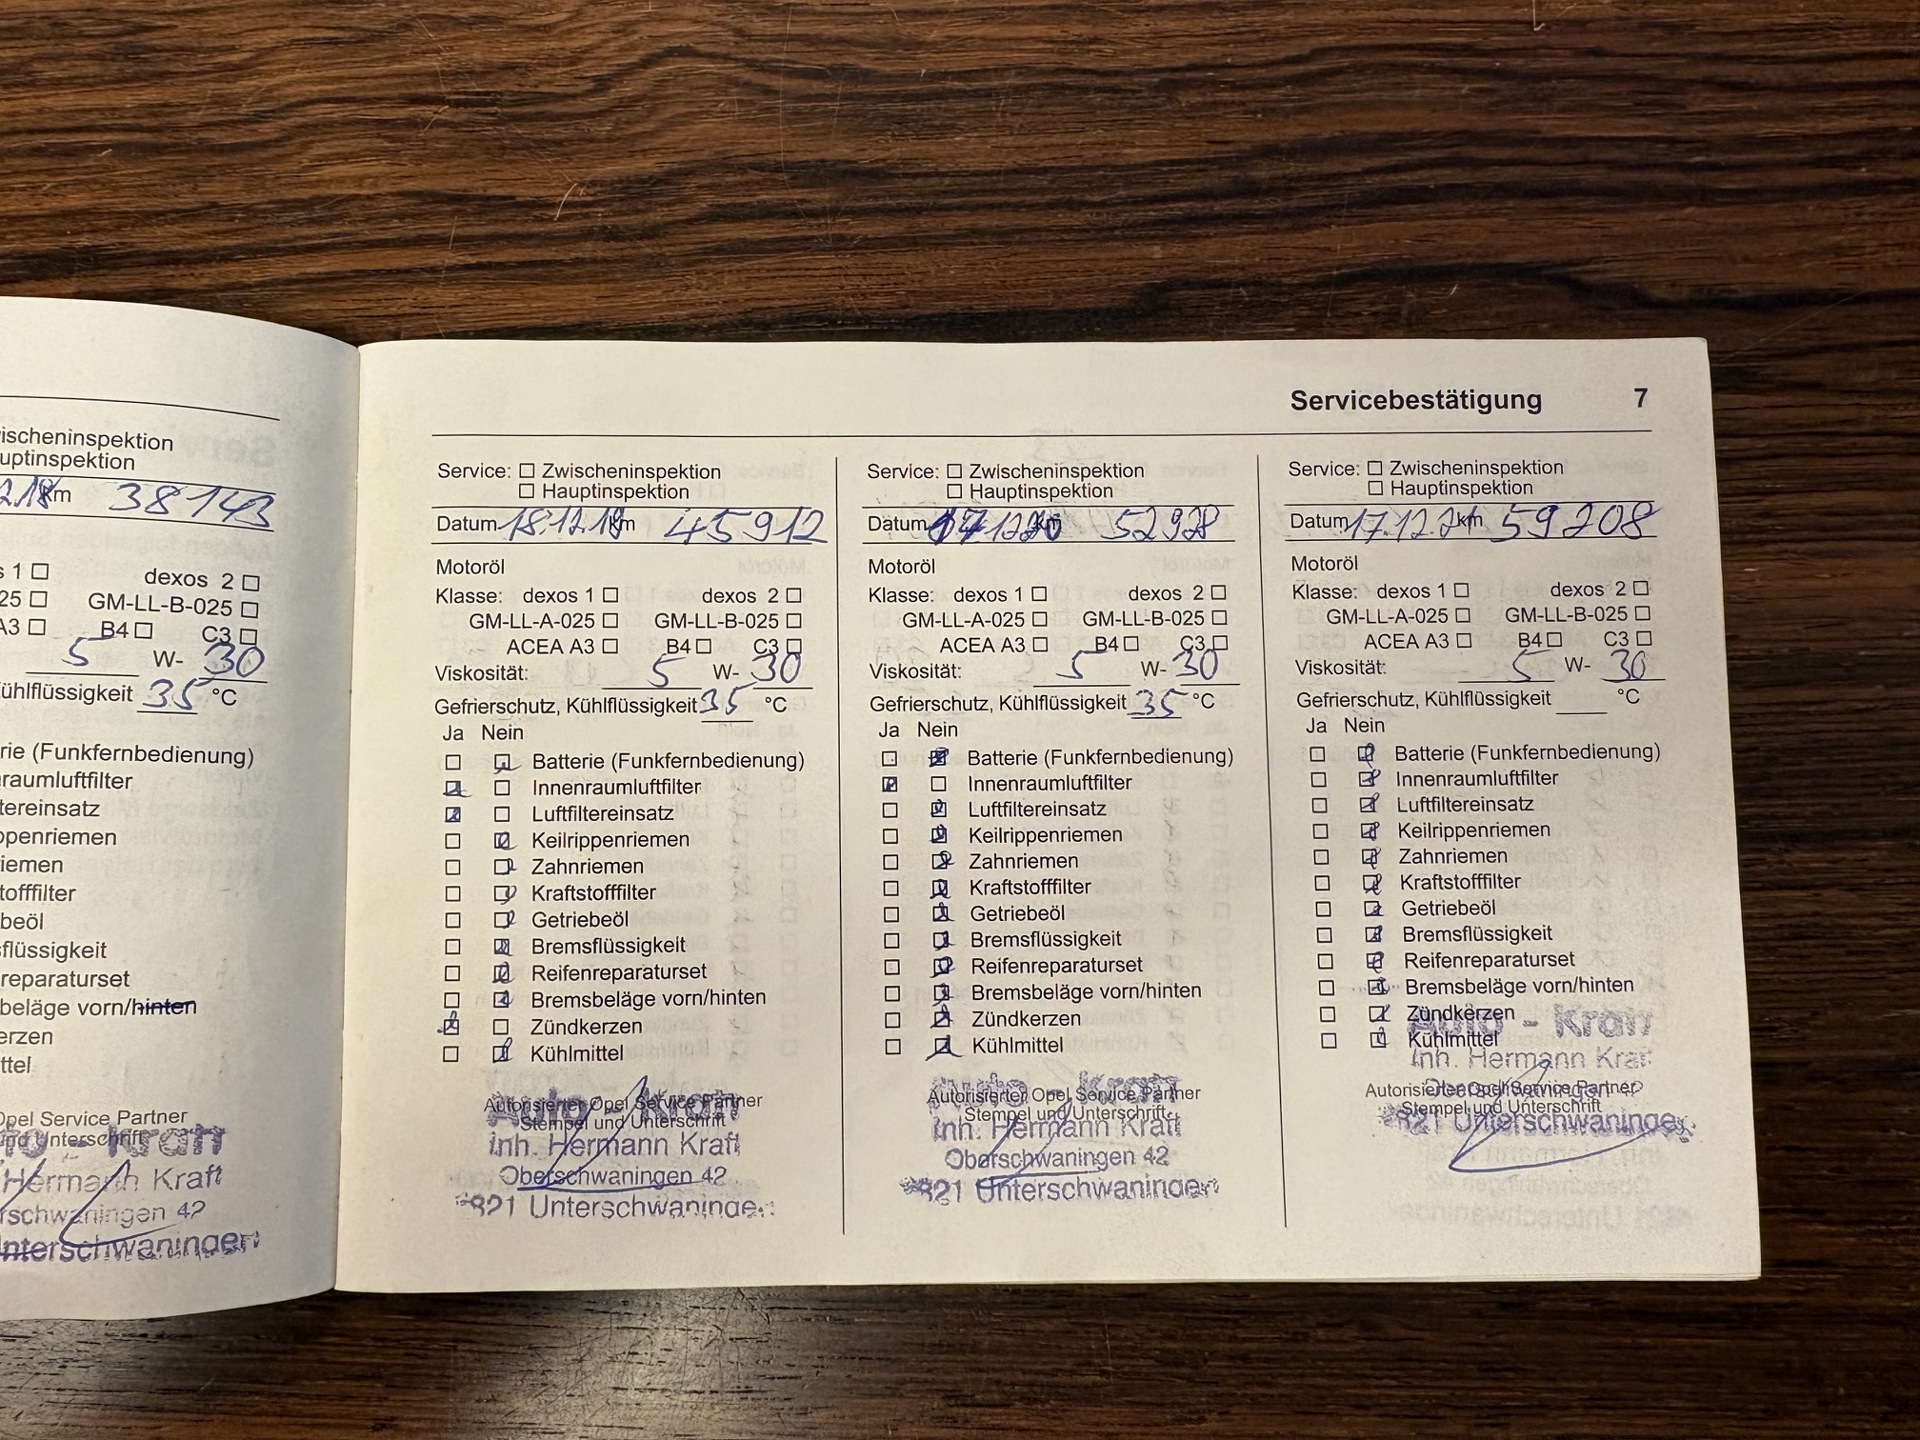 ischeninspektion
uptinspektion
km 38143
s 1 ☐ dexos 2 ☐
25 ☐ GM-LL-B-025 ☐
A3 ☐ B4 ☐ C3 ☐
5 W- 30
ühlflüssigkeit 35 °C
rie (Funkfernbedienung)
raumluftfilter
tereinsatz
ppenriemen
iemen
tofffilter
beöl
sflüssigkeit
reparaturset
beläge vorn/hinten
erzen
ttel
Opel Service Partner
und Unterschrift
Kraft
Hermann Kraft
rschwaningen 42
nterschwaningen
Servicebestätigung 7
Service: ☐ Zwischeninspektion
☐ Hauptinspektion
Datum 18.12.19 km 45912
Motoröl
Klasse: dexos 1 ☐ dexos 2 ☐
GM-LL-A-025 ☐ GM-LL-B-025 ☐
ACEA A3 ☐ B4 ☐ C3 ☐
Viskosität: 5 W- 30
Gefrierschutz, Kühlflüssigkeit 35 °C
Ja Nein
☐ ☒ Batterie (Funkfernbedienung)
☒ ☐ Innenraumluftfilter
☒ ☐ Luftfiltereinsatz
☐ ☒ Keilrippenriemen
☐ ☒ Zahnriemen
☐ ☒ Kraftstofffilter
☐ ☒ Getriebeöl
☐ ☒ Bremsflüssigkeit
☐ ☒ Reifenreparaturset
☐ ☒ Bremsbeläge vorn/hinten
☒ ☐ Zündkerzen
☐ ☒ Kühlmittel
Autorisierter Opel Service Partner
Stempel und Unterschrift
Auto - Kraft
Inh. Hermann Kraft
Oberschwaningen 42
821 Unterschwaningen
Service: ☐ Zwischeninspektion
☐ Hauptinspektion
Datum 17.12.20 km 52928
Motoröl
Klasse: dexos 1 ☐ dexos 2 ☐
GM-LL-A-025 ☐ GM-LL-B-025 ☐
ACEA A3 ☐ B4 ☐ C3 ☐
Viskosität: 5 W- 30
Gefrierschutz, Kühlflüssigkeit 35 °C
Ja Nein
☐ ☒ Batterie (Funkfernbedienung)
☒ ☐ Innenraumluftfilter
☐ ☒ Luftfiltereinsatz
☐ ☒ Keilrippenriemen
☐ ☒ Zahnriemen
☐ ☒ Kraftstofffilter
☐ ☒ Getriebeöl
☐ ☒ Bremsflüssigkeit
☐ ☒ Reifenreparaturset
☐ ☒ Bremsbeläge vorn/hinten
☐ ☒ Zündkerzen
☐ ☒ Kühlmittel
Autorisierter Opel Service Partner
Stempel und Unterschrift
Auto - Kraft
Inh. Hermann Kraft
Oberschwaningen 42
821 Unterschwaningen
Service: ☐ Zwischeninspektion
☐ Hauptinspektion
Datum 17.12.21 km 59208
Motoröl
Klasse: dexos 1 ☐ dexos 2 ☐
GM-LL-A-025 ☐ GM-LL-B-025 ☐
ACEA A3 ☐ B4 ☐ C3 ☐
Viskosität: 5 W- 30
Gefrierschutz, Kühlflüssigkeit °C
Ja Nein
☐ ☒ Batterie (Funkfernbedienung)
☐ ☒ Innenraumluftfilter
☐ ☒ Luftfiltereinsatz
☐ ☒ Keilrippenriemen
☐ ☒ Zahnriemen
☐ ☒ Kraftstofffilter
☐ ☒ Getriebeöl
☐ ☒ Bremsflüssigkeit
☐ ☒ Reifenreparaturset
☐ ☒ Bremsbeläge vorn/hinten
☐ ☒ Zündkerzen
☐ ☒ Kühlmittel
Auto - Kraft
Inh. Hermann Kraft
Oberschwaningen 42
Autorisierter Opel Service Partner
Stempel und Unterschrift
821 Unterschwaningen